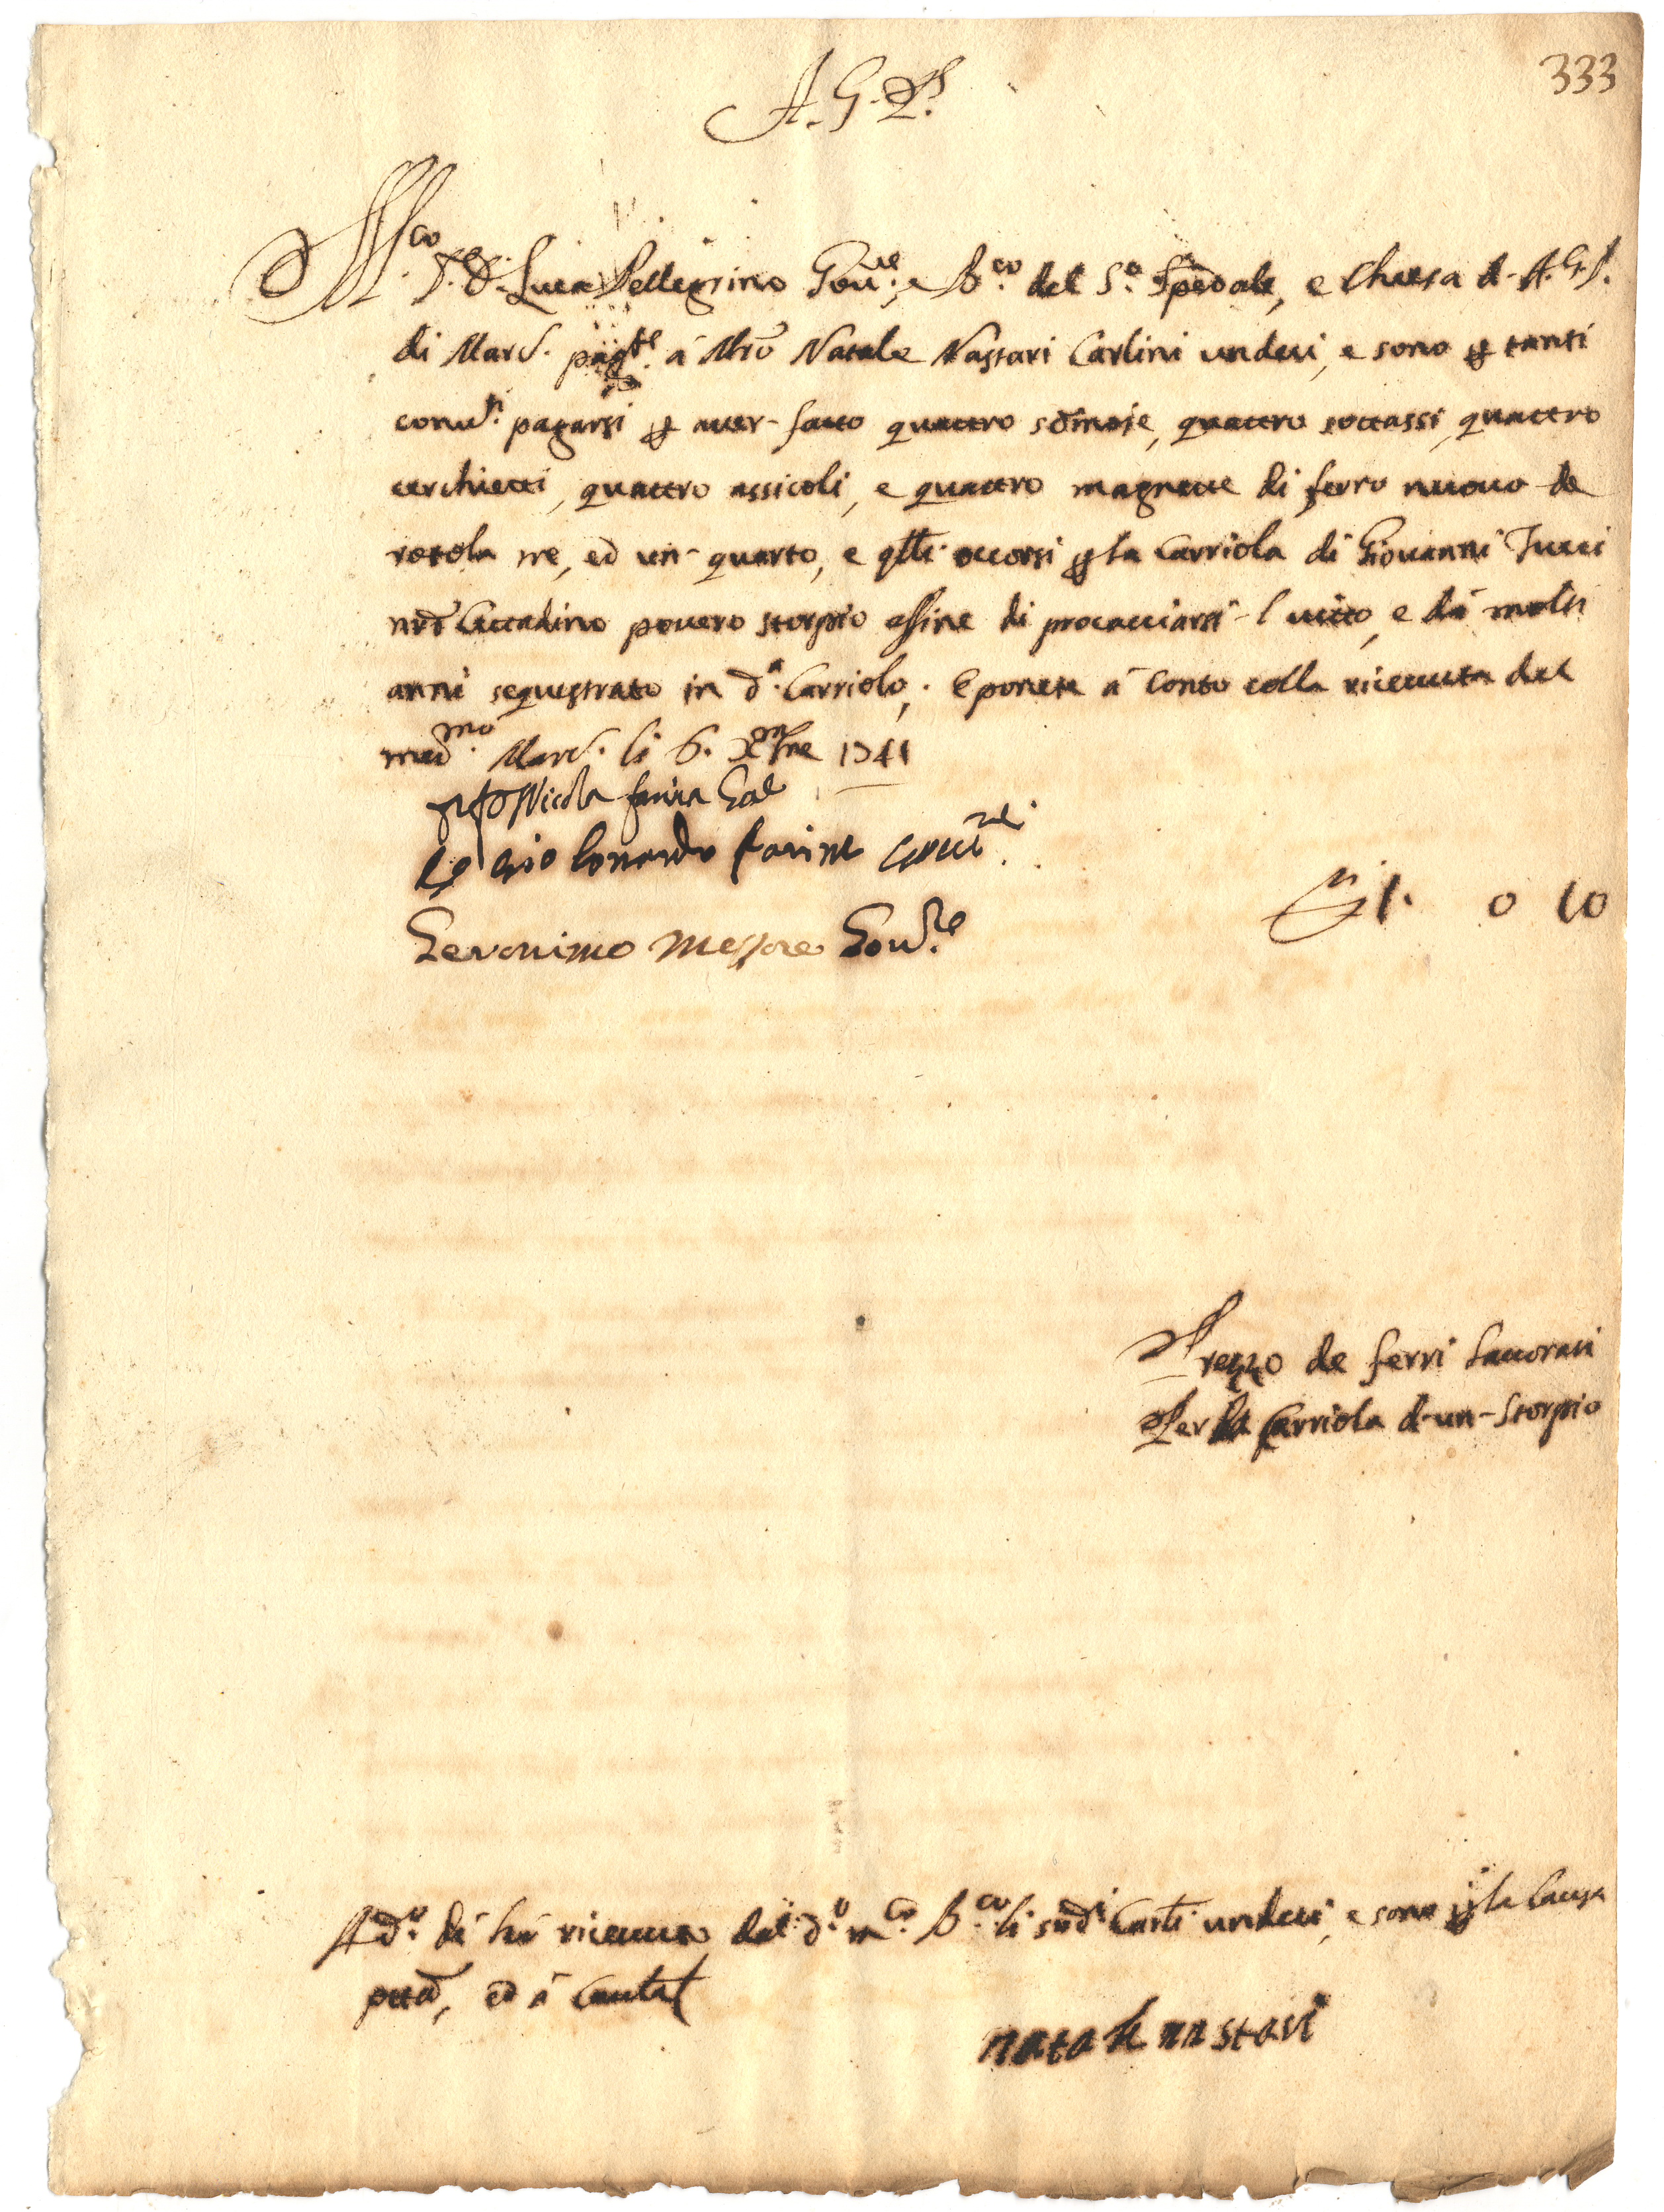 333
A. G. P.
M.co S.r D. Luca Pellegrino Gov.re, e B.co del S.o Spedale, e Chiesa d. A. G. P.
di Mard. pag.te à Mrõ Natale Nastari Carlini undeci, e sono p tanti
conv.ti pagarsi p aver fatto quattro quattro sottassi, quattro
cerchietti, quattro assicoli, e quattro magnette di ferro nuovo de
rotola tre, ed un quarto, e qlli occorsi p la Carriola di Giovanni Tucci
nrõ Cittadino povero storpio affine di procacciarsi l vitto, e dà molti
anni sequestrato in d.a Carriola, E ponete à conto colla ricevuta del
med.mo Mard. li 6. Xmbre 1741
Nicola
Io Gio Lonardo Farina Gov.re
Geronimo Messore Gov.re
1. 0 10
Prezzo de ferri lavorati
Per la Carriola d-un-Storpio
A d.o dì hò ricevuto dal d.o m.co B.co li sud.i Carl.i undeci, e sono p la Causa
pttã, ed à Cautel
natale nastari